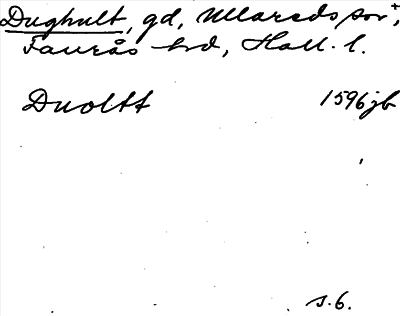 Dughult, gd, Ullareds sn+,
Faurås hd, Hall. l.
Duoltt 1596 jb
s. 6.